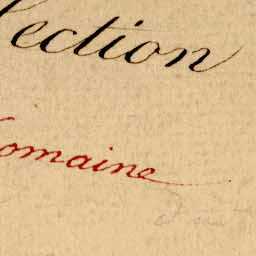 lection
omaine